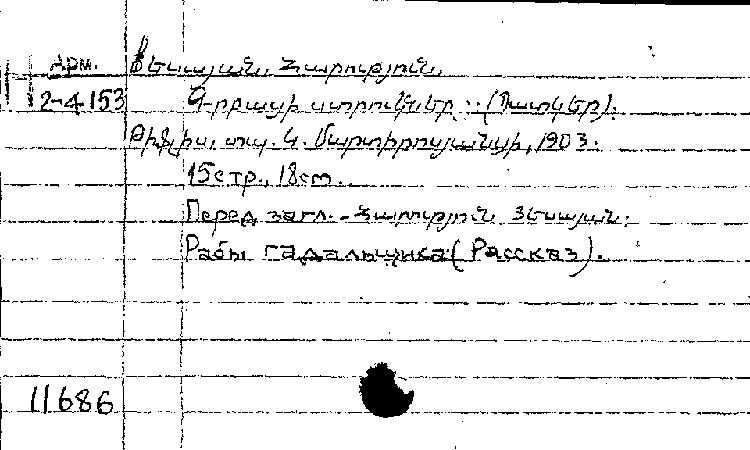 Арм. Եսայան, Հարություն.
2-4153 Գրբացի ստրուկներ: (Պատկեր).
Թիֆլիս, տպ. Կ. Մարտիրոսյանցի, 1903.
15стр., 18cm.
Перед загл. - Հարություն Եսայան.
Рабы гадальщика (Рассказ).
11686